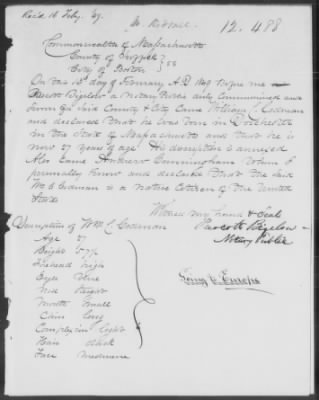 Rec'd 16 Feby. 49.
12.488
Commonwealth of Massachusetts
County of Suffolk } ss
City of Boston
On this 15th day of February A.D. 1849 before me
Prescott Bigelow a Notary Public duly Commissioned and
Sworn for said County & City Came William S. Codman
and declared that he was born in Dorchester
in the State of Massachusetts and that he is
now 27 years of age. His description is annexed
Also Came Andrew Cunningham whom I
personally know and declared that the said
Wm S Codman is a native Citizen of the United
States
Witness my hand & Seal
Prescott Bigelow
Notary Public
Description of Wm S Codman
Age 27
Height
Forehead high
Eyes blue
Nose
Mouth small
Chin long
Complexion light
Hair
Face medium
Going to Europe